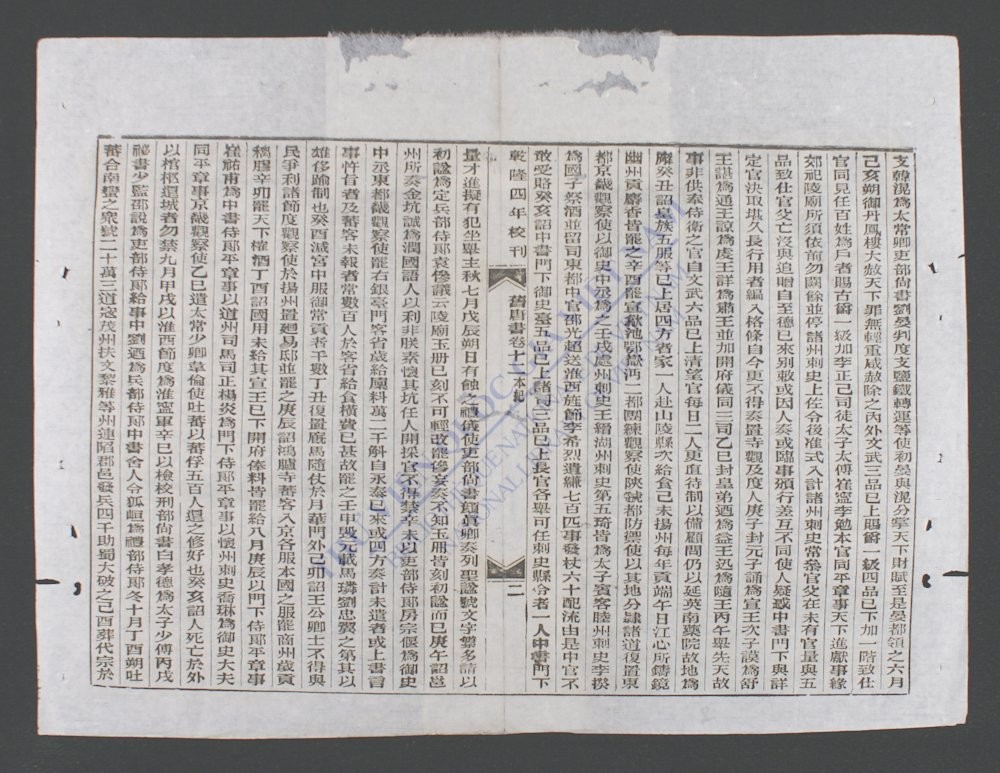 支韓滉為太常卿吏部尚書劉晏判度支鹽鐵轉運等使初晏與滉分掌天下財賦至是晏都領之六月
己亥朔御丹鳳樓大赦天下罪無輕重咸赦除之內外文武三品已上賜爵一級四品已下加一階致仕
官同見任百姓為戶者賜古爵一級加李正己司徒太子太傅崔寧李勉本官同平章事天下進獻事緣
郊祀陵廟所須依前勿闕餘並停諸州刺史上佐今後准式入計諸州刺史常參官父在未有官量與五
品致仕官父亡沒與追贈自至德已來別敕或因人奏或臨事頒行差互不同使人疑惑中書門下與詳
定官決取堪久長行用者編入格條自今更不得奏置寺觀及度人庚子封元子誦為宣王次子謨為舒
王諶為通王諒為虔王詳為肅王並加開府儀同三司乙巳封皇弟迺為益王迅為隨王丙午舉先天故
事非供奉侍衛之官自文武六品已上清望官每日二人更直待制以備顧問仍以延英南藥院故地為
廨癸丑詔皇族五服等已上居四方者家一人赴山陵縣次給食己未揚州每年貢端午日江心所鑄鏡
幽州貢麝香皆罷之辛酉罷宣歙池鄂嶽沔二都團練觀察使陝虢都防禦使以其地分隸諸道復置東
都京畿觀察使以御史中丞為之壬戌處州刺史王縉湖州刺史第五琦皆為太子賓客睦州刺史李揆
為國子祭酒並留司東都中官邵光超送淮西旌節李希烈遺縑七百匹事發杖六十配流由是中官不
敢受賂癸亥詔中書門下御史臺五品已上諸司三品已上長官各舉可任刺史縣令者一人中書門下
乾隆四年校刊
舊唐書卷十二
本紀
二
量才進擬有犯坐舉主秋七月戊辰朔日有蝕之禮儀使吏部尚書顏真卿奏列聖謚號文字繁多請以
初謚為定兵部侍郎袁傪議云陵廟玉冊已刻不可輕改罷傪妄奏不知玉冊皆刻初謚而已庚午詔邕
州所奏金坑誠為潤國語人以利非朕素懷其坑任人開採官不得禁辛未以吏部侍郎房宗偃為御史
中丞東都畿觀察使罷右銀臺門客省歲給廩料萬二千斛自永泰已來或四方奏計未遣者或上書言
事忤旨者及蕃客未報者常數百人於客省給食橫費已甚故罷之壬申毀元載馬璘劉忠翼之第其以
雄侈踰制也癸酉減宮中服御常貢者千數丁丑復置廄馬隨仗於月華門外己卯詔王公卿士不得與
民爭利諸節度觀察使於揚州置迴易邸並罷之庚辰詔鴻臚寺蕃客入京各服本國之服罷商州歲貢
稱膠辛卯罷天下榷酒丁酉詔國用未給其宣王已下開府俸料皆罷給八月庚辰以門下侍郎平章事
崔祐甫為中書侍郎平章事以道州司馬司正楊炎為門下侍郎平章事以懷州刺史喬琳為御史大夫
同平章事京畿觀察使乙巳遣太常少卿韋倫使吐蕃以蕃俘五百人還之修好也癸亥詔人死亡於外
以棺柩還城者勿禁九月甲戌以淮西節度為淮寧軍辛巳以檢校刑部尚書白孝德為太子少傅丙戌
祕書少監邵說為吏部侍郎給事中劉迺為兵部侍郎中書舍人令狐峘為禮部侍郎冬十月丁酉朔吐
蕃合南蠻之衆號二十萬三道寇茂州扶文黎雅等州連陷郡邑發兵四千助蜀大破之己酉葬代宗於